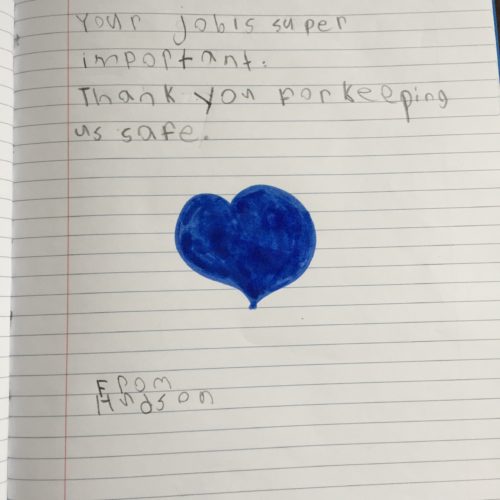 Your job is super
important.
Thank you for keeping
us safe.
From
Hudson